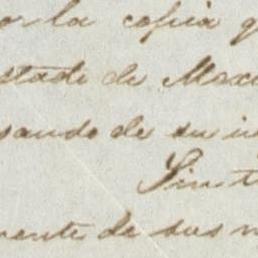 or la copia q
stado de Mexi
sando de su i
Sin t
mente de sus n